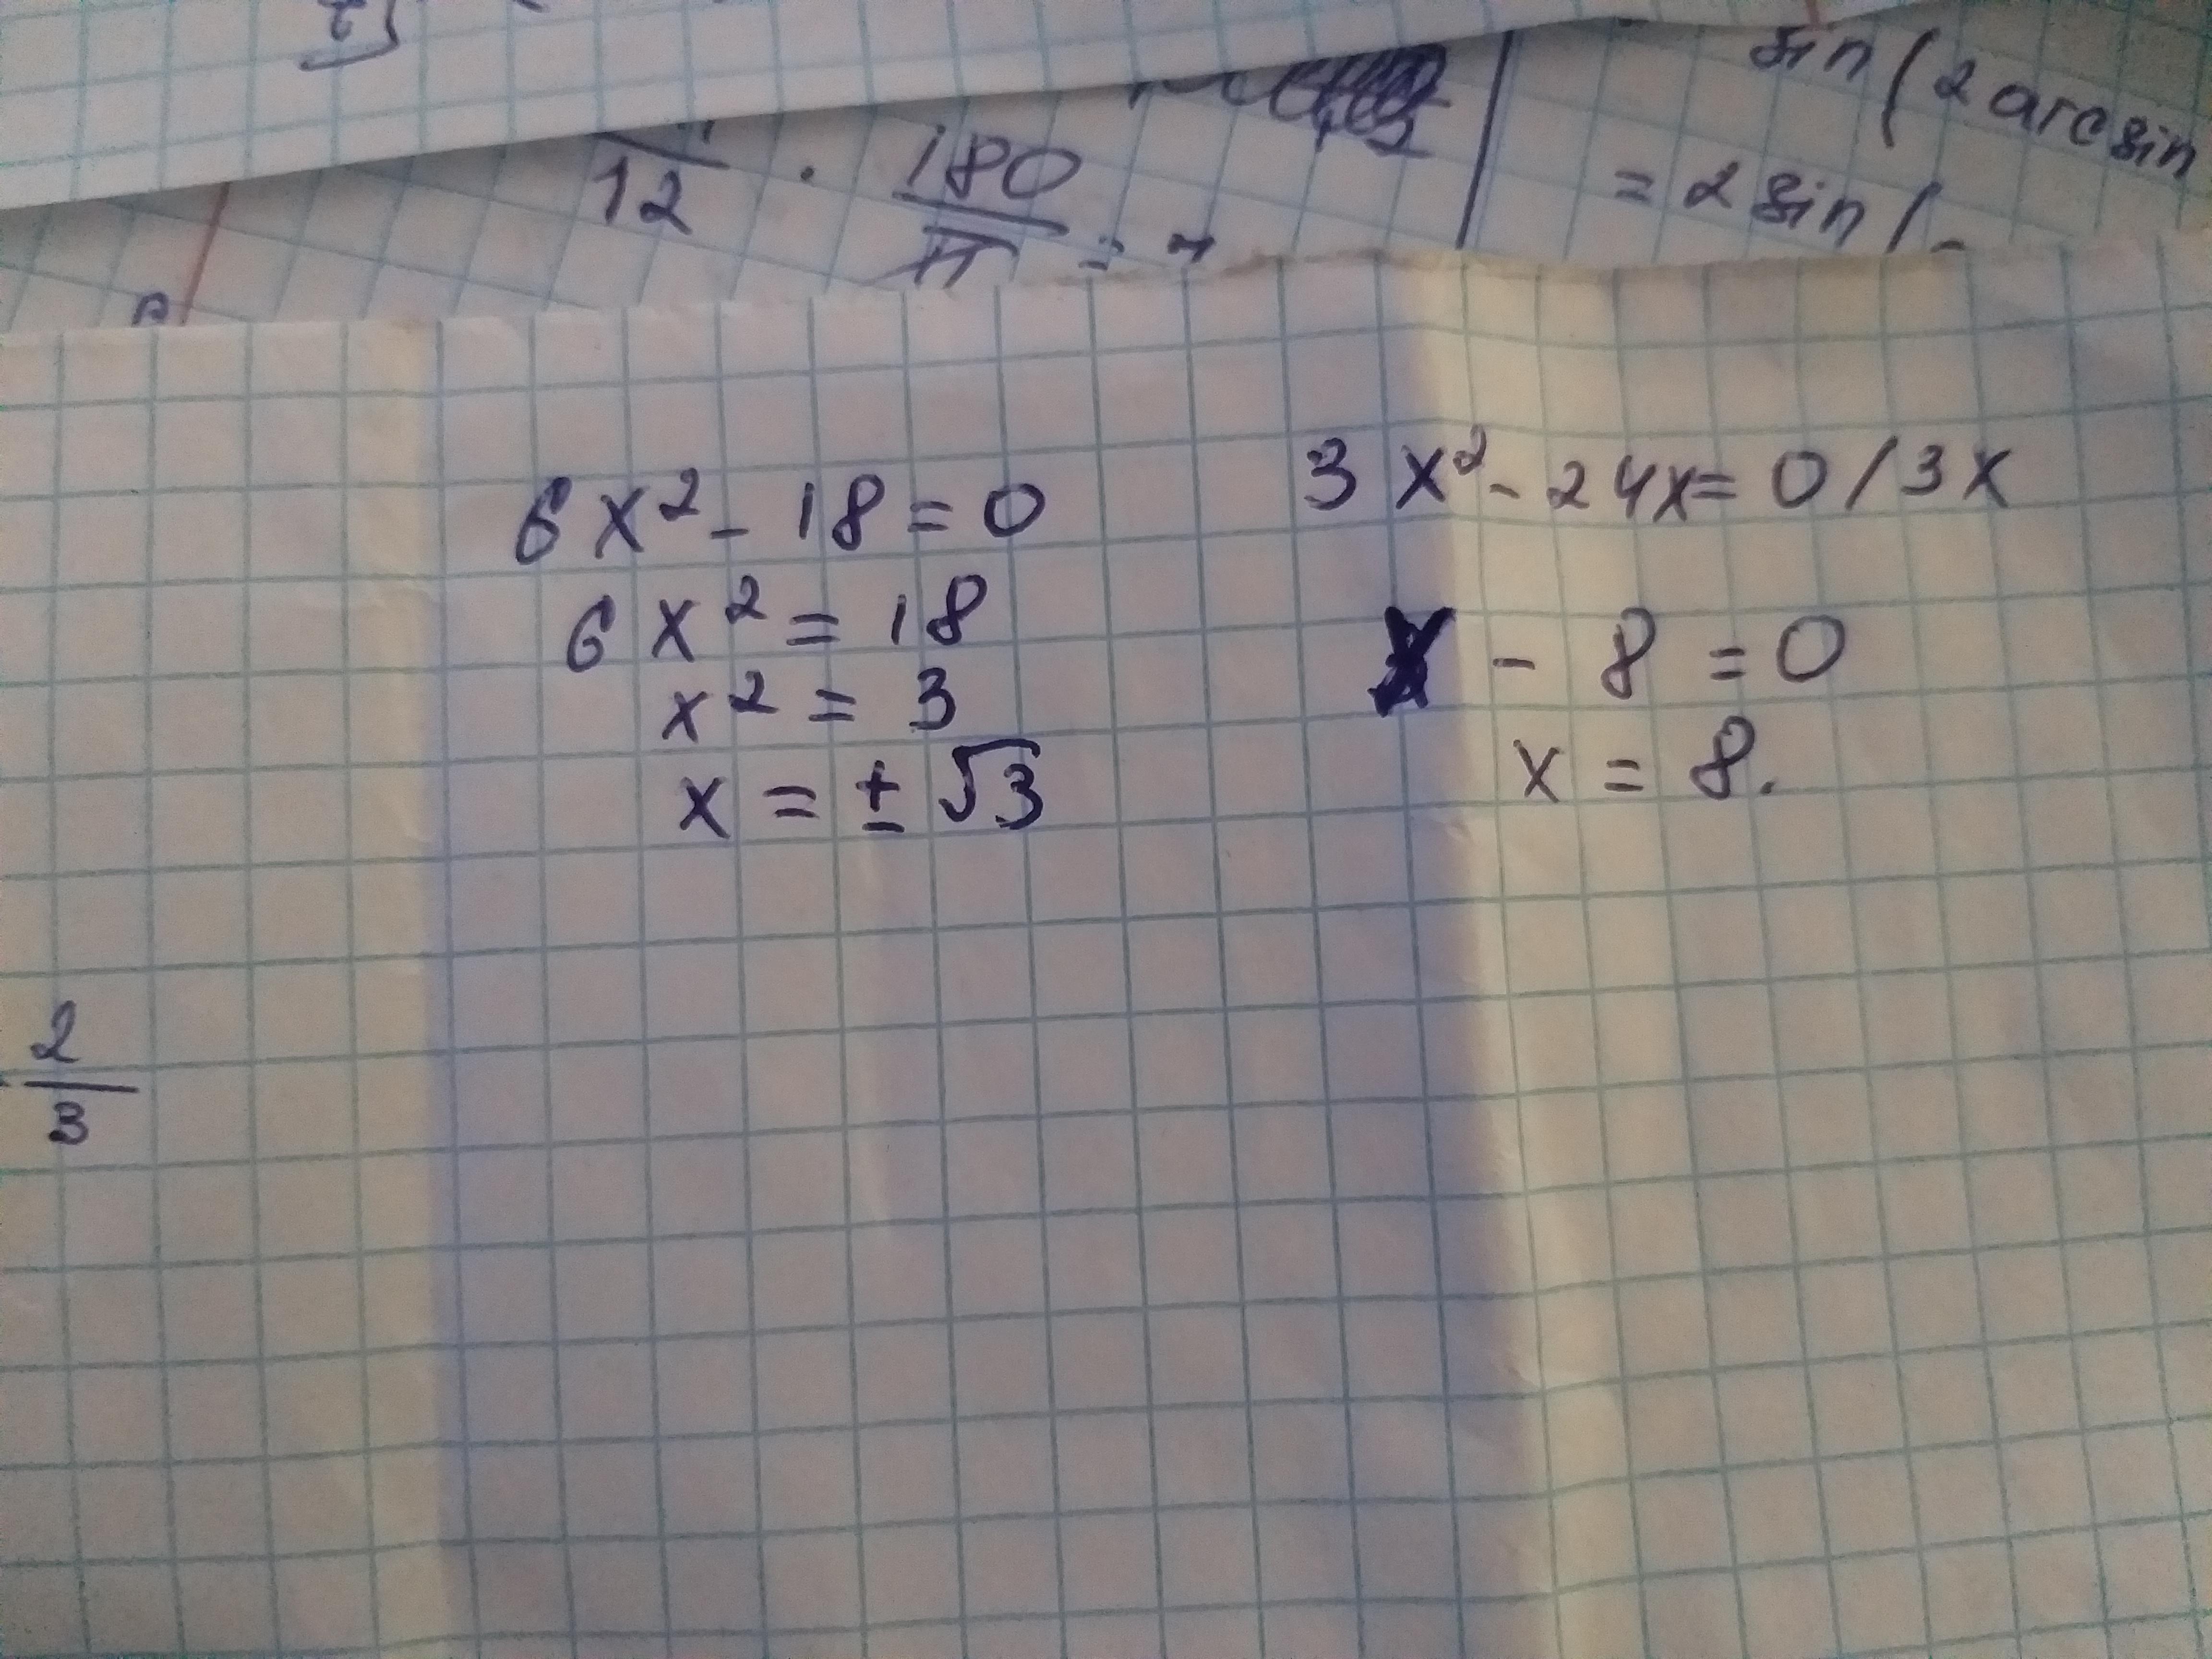 12 · 180/π =
sin(2 arcsin
= 2 sin(-
6x² - 18 = 0
6x² = 18
x² = 3
x = ± √3
3x² - 24x = 0 / 3x
x - 8 = 0
x = 8.
2/3